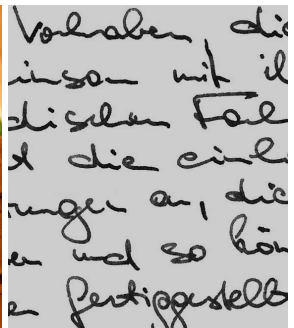 Vorhaben, die
insam mit il
dischen Fac
t die einh
rungen an, die
en und so kön
en fertiggestellt